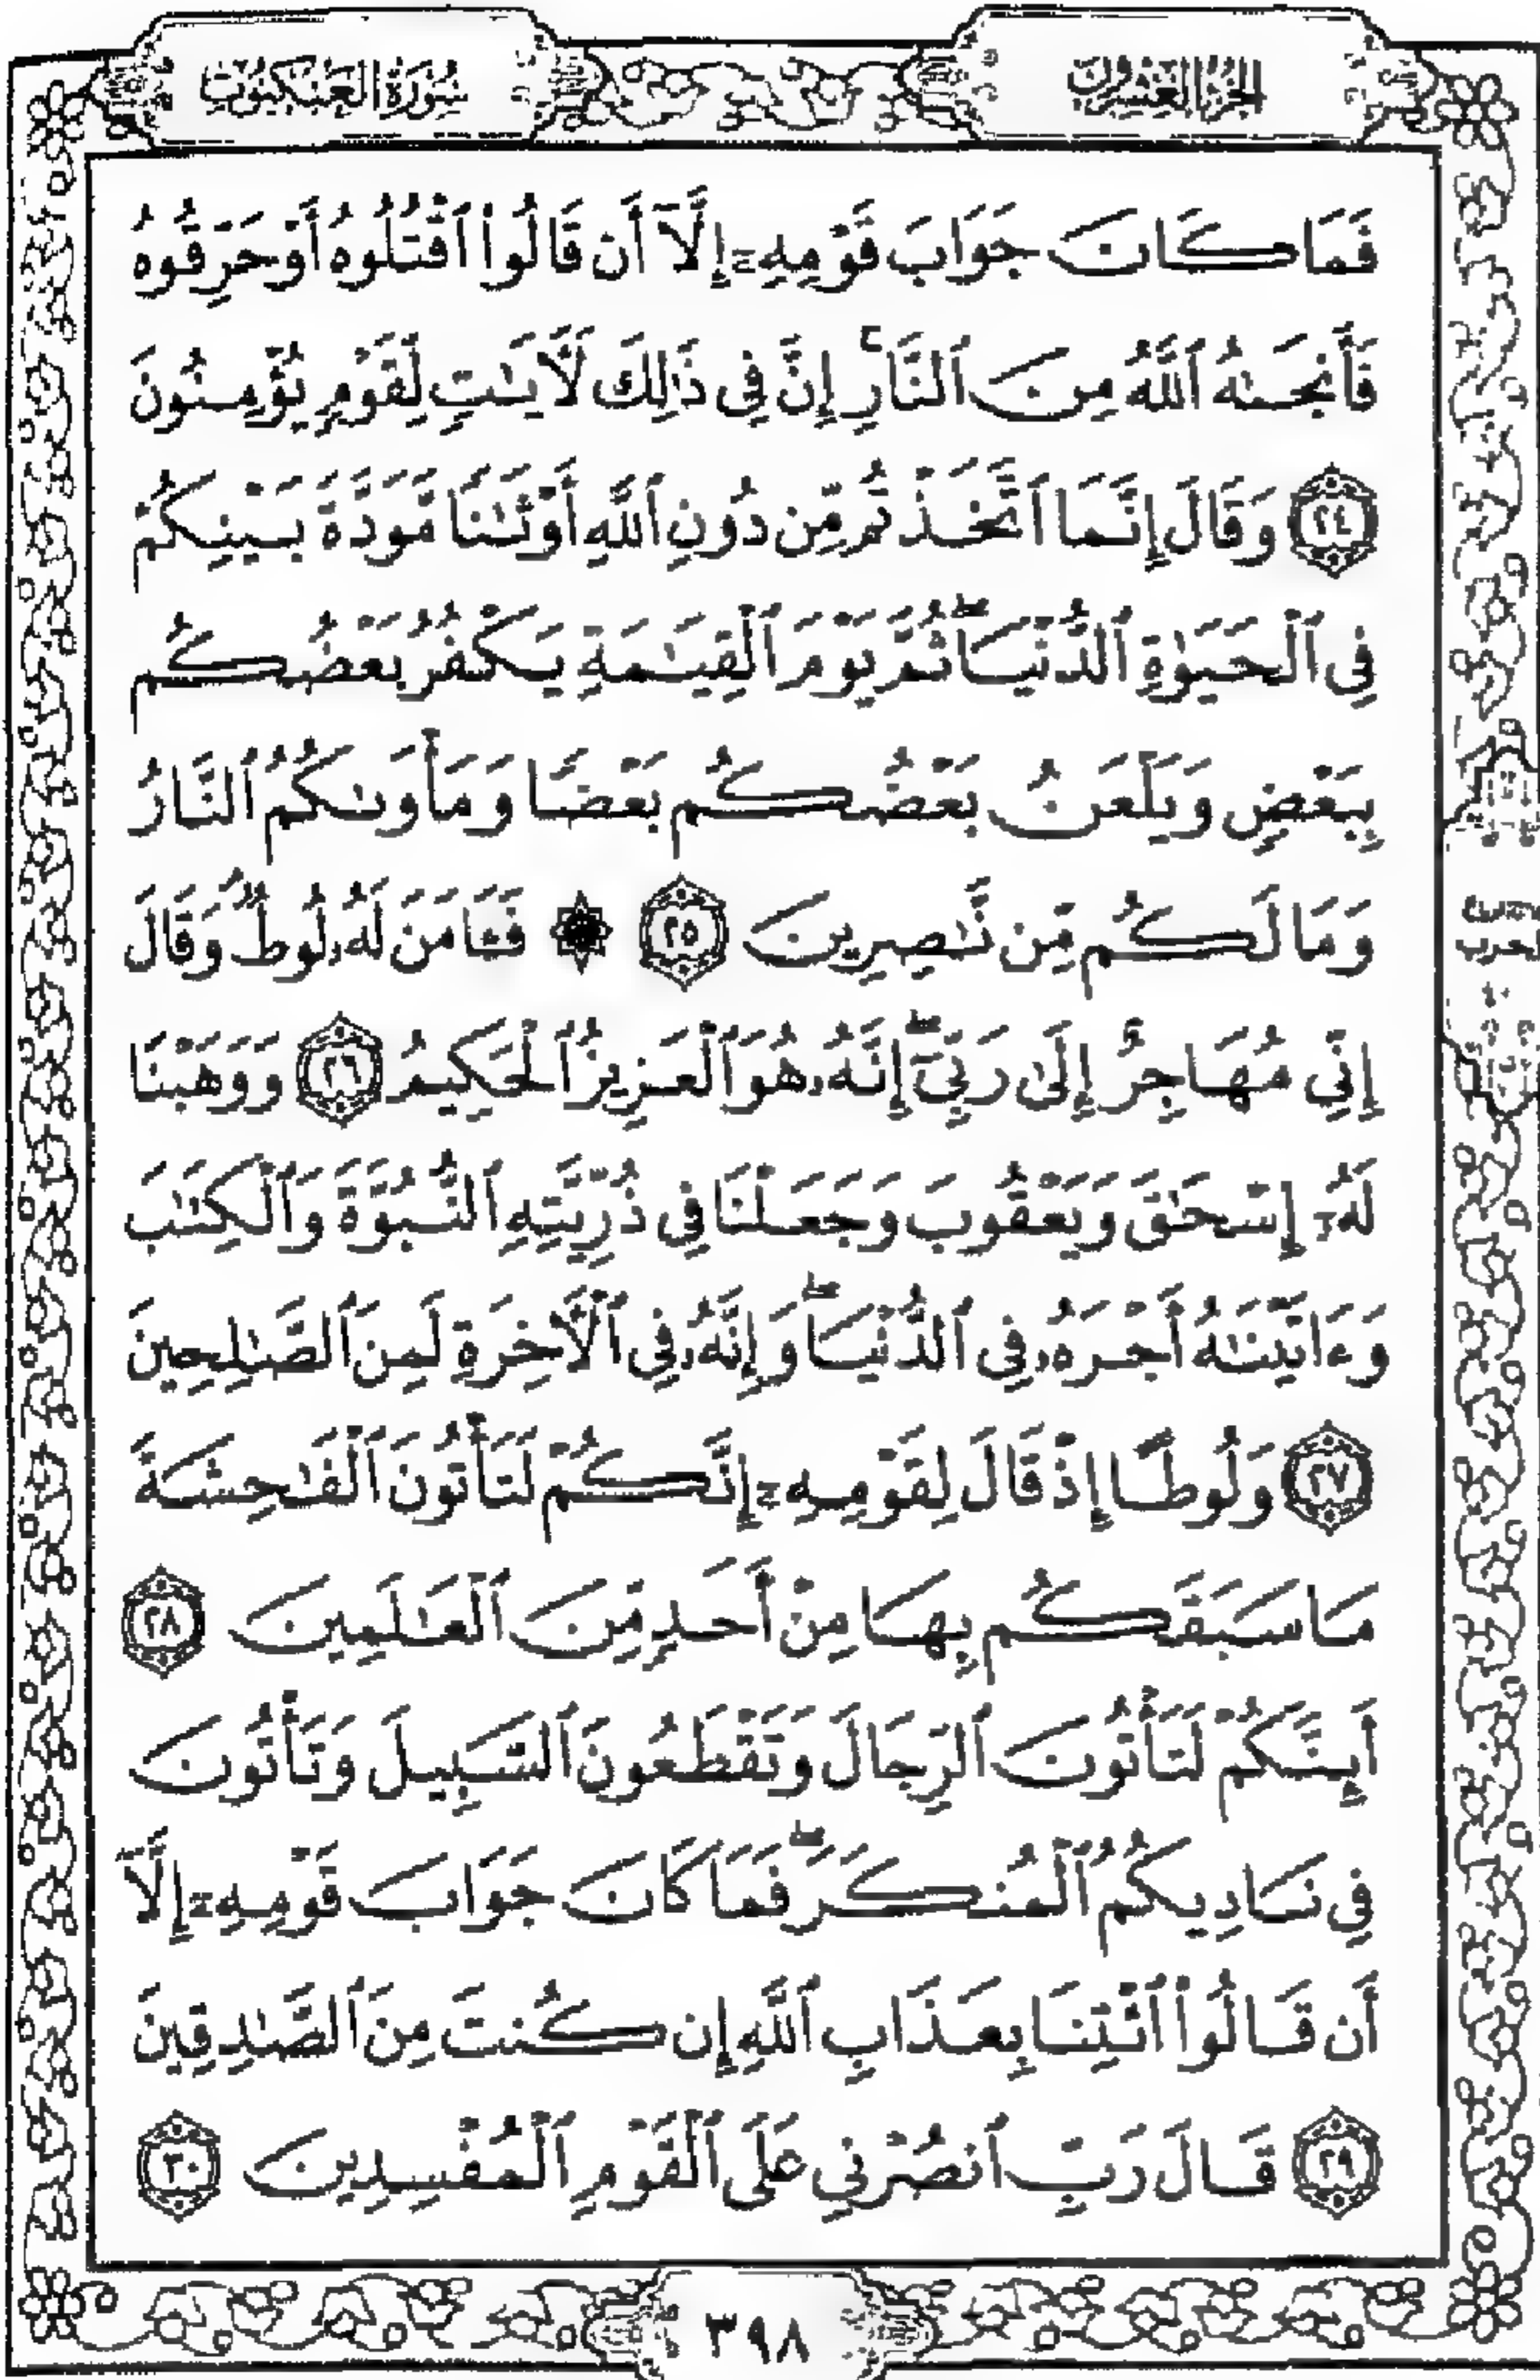 الجزء العشرون
سورة العنكبوت
فَمَا كَانَ جَوَابَ قَوْمِهِۦٓ إِلَّآ أَن قَالُوا۟ ٱقْتُلُوهُ أَوْ حَرِّقُوهُ
فَأَنجَىٰهُ ٱللَّهُ مِنَ ٱلنَّارِ ۚ إِنَّ فِى ذَٰلِكَ لَـَٔايَـٰتٍ لِّقَوْمٍ يُؤْمِنُونَ
٢٤ وَقَالَ إِنَّمَا ٱتَّخَذْتُم مِّن دُونِ ٱللَّهِ أَوْثَـٰنًا مَّوَدَّةَ بَيْنِكُمْ
فِى ٱلْحَيَوٰةِ ٱلدُّنْيَا ۖ ثُمَّ يَوْمَ ٱلْقِيَـٰمَةِ يَكْفُرُ بَعْضُكُم
بِبَعْضٍ وَيَلْعَنُ بَعْضُكُم بَعْضًا وَمَأْوَىٰكُمُ ٱلنَّارُ
وَمَا لَكُم مِّن نَّـٰصِرِينَ ٢٥ ۞ فَـَٔامَنَ لَهُۥ لُوطٌ ۘ وَقَالَ
إِنِّى مُهَاجِرٌ إِلَىٰ رَبِّىٓ ۖ إِنَّهُۥ هُوَ ٱلْعَزِيزُ ٱلْحَكِيمُ ٢٦ وَوَهَبْنَا
لَهُۥٓ إِسْحَـٰقَ وَيَعْقُوبَ وَجَعَلْنَا فِى ذُرِّيَّتِهِ ٱلنُّبُوَّةَ وَٱلْكِتَـٰبَ
وَءَاتَيْنَـٰهُ أَجْرَهُۥ فِى ٱلدُّنْيَا ۖ وَإِنَّهُۥ فِى ٱلْـَٔاخِرَةِ لَمِنَ ٱلصَّـٰلِحِينَ
٢٧ وَلُوطًا إِذْ قَالَ لِقَوْمِهِۦٓ إِنَّكُمْ لَتَأْتُونَ ٱلْفَـٰحِشَةَ
مَا سَبَقَكُم بِهَا مِنْ أَحَدٍ مِّنَ ٱلْعَـٰلَمِينَ ٢٨
أَئِنَّكُمْ لَتَأْتُونَ ٱلرِّجَالَ وَتَقْطَعُونَ ٱلسَّبِيلَ وَتَأْتُونَ
فِى نَادِيكُمُ ٱلْمُنكَرَ ۖ فَمَا كَانَ جَوَابَ قَوْمِهِۦٓ إِلَّآ
أَن قَالُوا۟ ٱئْتِنَا بِعَذَابِ ٱللَّهِ إِن كُنتَ مِنَ ٱلصَّـٰدِقِينَ
٢٩ قَالَ رَبِّ ٱنصُرْنِى عَلَى ٱلْقَوْمِ ٱلْمُفْسِدِينَ ٣٠
٣٩٨